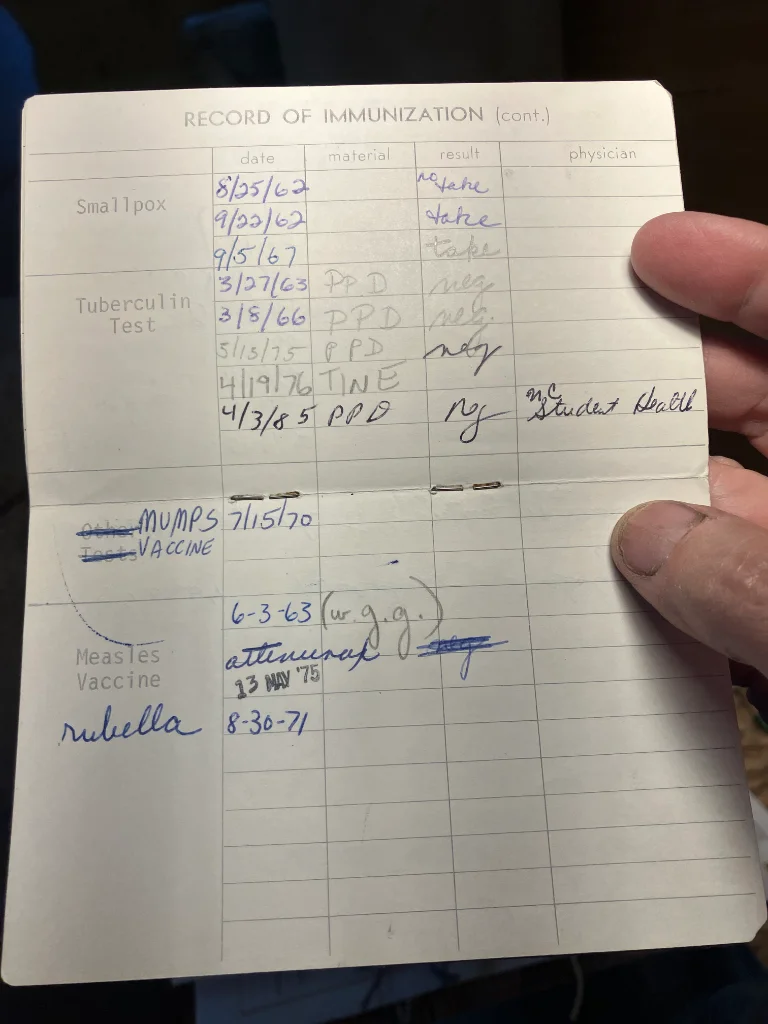 RECORD OF IMMUNIZATION (cont.)
date material result physician
Smallpox 8/25/62 no take
9/22/62 take
9/5/67 take
Tuberculin Test 3/27/63 PPD neg
3/8/66 PPD neg.
5/13/75 PPD neg
4/19/76 TINE
4/3/85 PPD neg NC Student Health
Other MUMPS 7/15/70
Tests VACCINE
6-3-63 (w. g.g.)
Measles
Vaccine 13 MAY '75
rubella 8-30-71